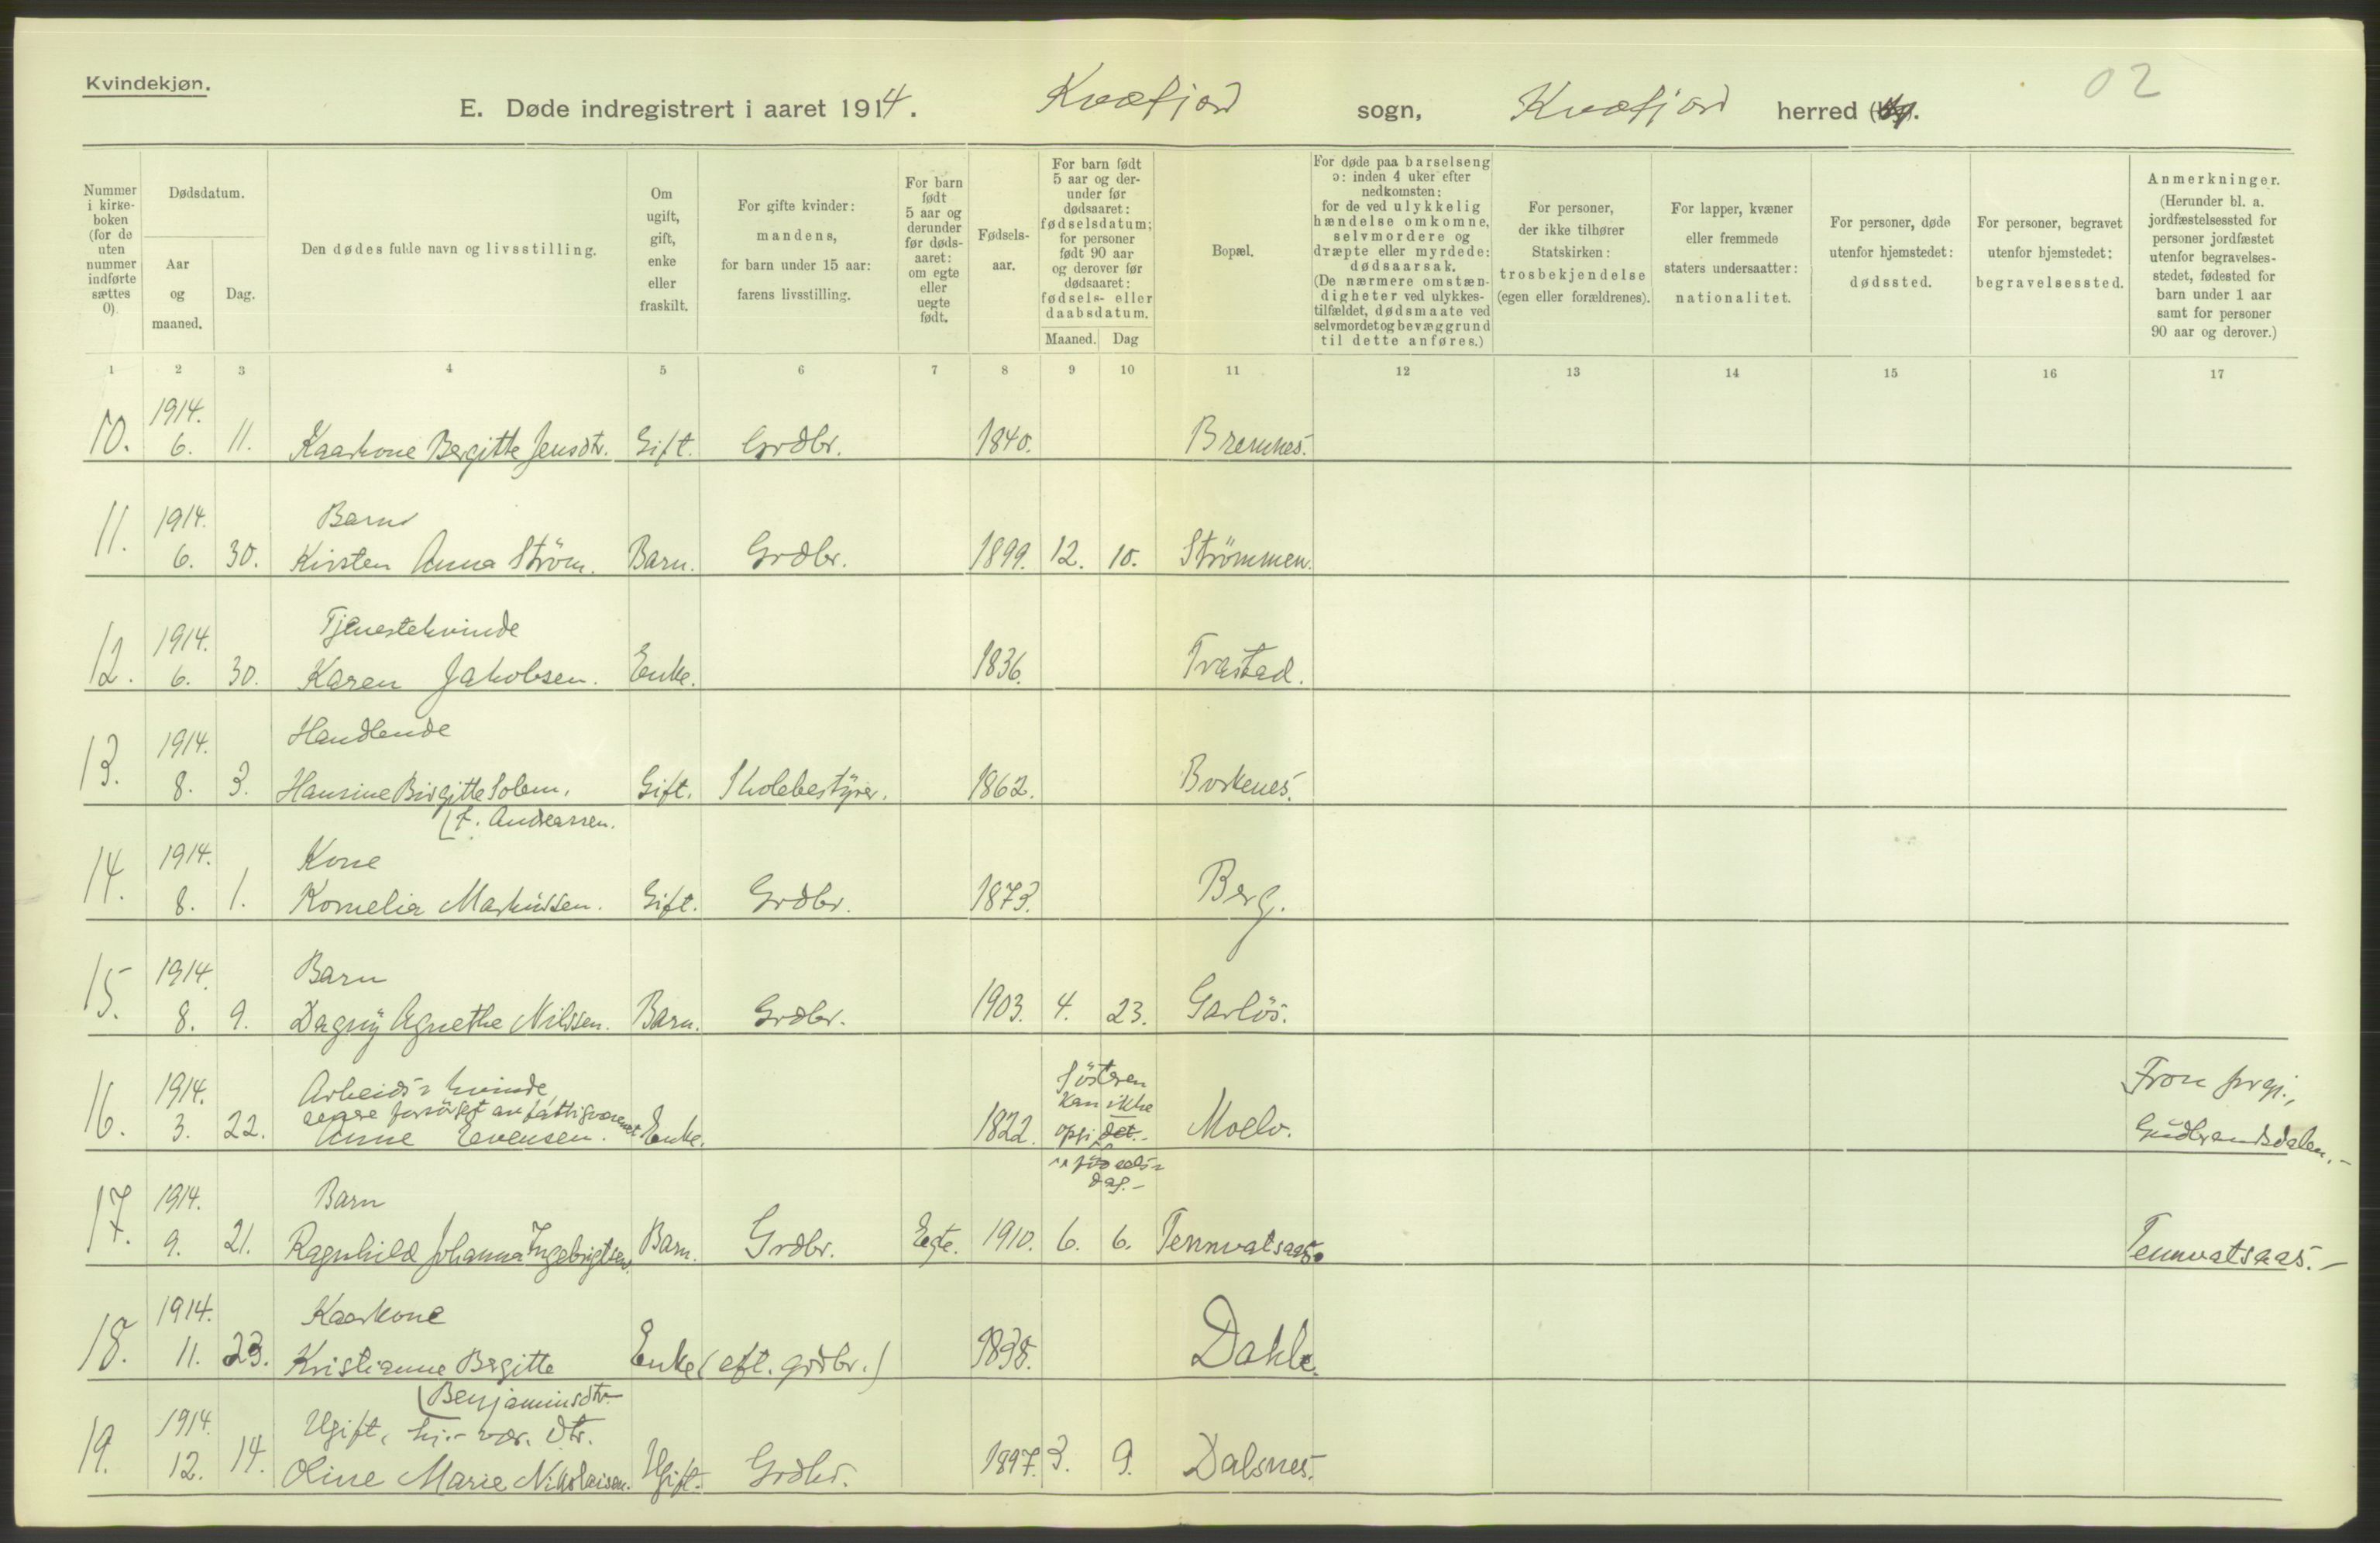 Kvindekjøn.
E. Døde indregistrert i aaret 1914. Kvæfjord sogn, Kvæfjord herred
02
Nummer i kirke-boken (for de uten nummer indførte sættes 0).
Dødsdatum.
Aar og maaned.
Dag.
Den dødes fulde navn og livsstilling.
Om ugift, gift, enke eller fraskilt.
For gifte kvinder: mandens, for barn under 15 aar: farens livsstilling.
For barn født 5 aar og derunder før døds-aaret: om egte eller uegte født.
Fødsels-aar.
For barn født 5 aar og der-under før dødsaaret: fødselsdatum; for personer født 90 aar og derover før dødsaaret: fødsels- eller daabsdatum.
Maaned. Dag
Bopæl.
For døde paa barselseng ɔ: inden 4 uker efter nedkomsten: for de ved ulykkelig hændelse omkomne, selvmordere og dræpte eller myrdede: dødsaarsak. (De nærmere omstæn-digheter ved ulykkes-tilfældet, dødsmaate ved selvmordet og bevæggrund til dette anføres.)
For personer, der ikke tilhører Statskirken: trosbekjendelse (egen eller forældrenes).
For lapper, kvæner eller fremmede staters undersaatter: nationalitet.
For personer, døde utenfor hjemstedet: dødssted.
For personer, begravet utenfor hjemstedet: begravelsessted.
Anmerkninger. (Herunder bl. a. jordfæstelsessted for personer jordfæstet utenfor begravelses-stedet, fødested for barn under 1 aar samt for personer 90 aar og derover.)
1 2 3 4 5 6 7 8 9 10 11 12 13 14 15 16 17
1914.
10. 6. 11. Kaarkone Bergitte Jensdtr. Gift. Grdbr. 1840. Bremnes.
1914. Barn
11. 6. 30. Kirsten Anna Ström. Barn. Grdbr. 1899. 12. 10. Strömmen.
1914. Tjenestekvinde
12. 6. 30. Karen Jakobsen. Enke. 1836. Trastad.
1914. Handlende
13. 8. 3. Hansine Birgitte Solem, Gift. Skolebestyrer. 1862. Borkenes.
(f. Andreassen.
1914. Kone
14. 8. 1. Kornelia Markussen. Gift. Grdbr. 1873. Berg.
1914. Barn
15. 8. 9. Dagny Agnethe Nilssen. Barn. Grdbr. 1903. 4. 23. Garlös.
1914. Arbeids kvinde, Söstren Fron prgj.,
forsörget av fattigvæsenet kan ikke
16. 3. 22. Anne Evensen. Enke. 1822. opgi det. Moelv. Gudbrandsdalen.-
födsels
dag.-
1914. Barn
17. 9. 21. Ragnhild Johanna Ingebrigtsen. Barn. Grdbr. Egte. 1910. 6. 6. Tennvatsaas. Tennvatsaas.-
1914. Kaarkone
18. 11. 23. Kristianne Bergitte Enke (eft. grdbr.) 1838. Dahle.
(Benjaminsdtr.
1914. Ugift, hj.- vær. dtr.
19. 12. 14. Oline Marie Nikolaisen. Ugift. Grdbr. 1897. 3. 9. Dalsnes.